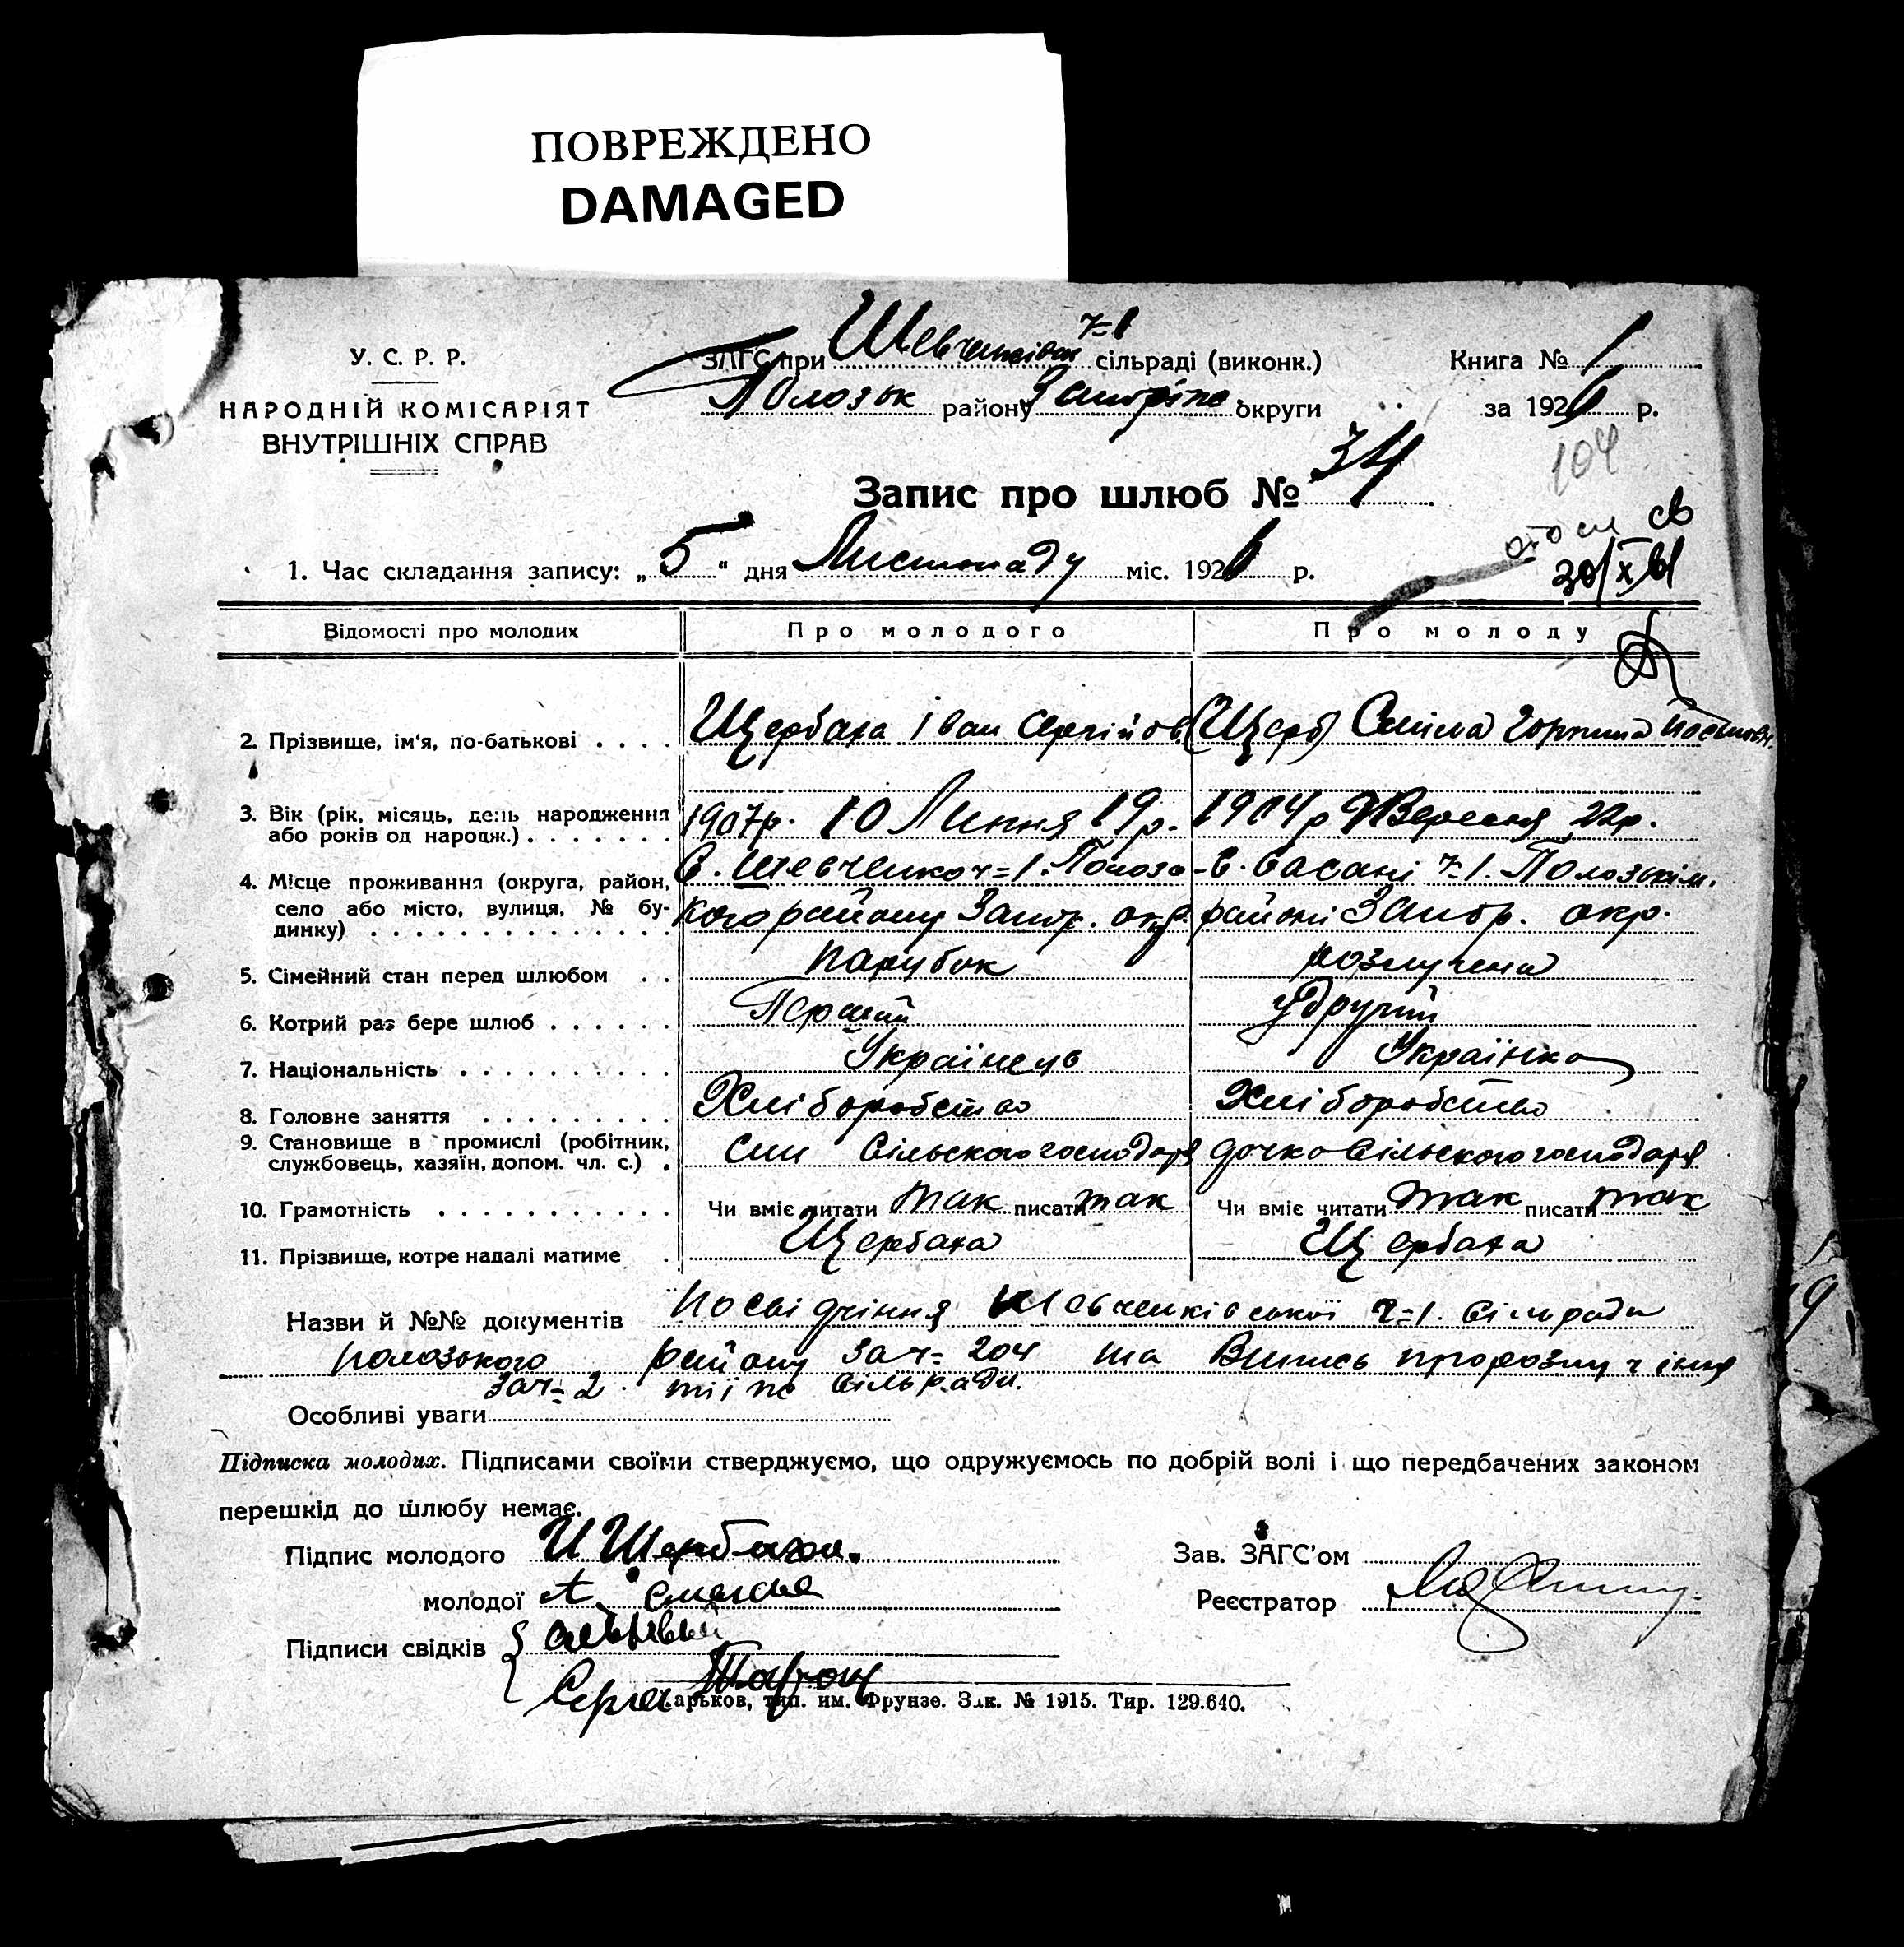 ПОВРЕЖДЕНО
DAMAGED
У. С. Р. Р.
НАРОДНІЙ КОМІСАРІЯТ
ВНУТРІШНІХ СПРАВ
ЗАГС при Шевченківськ ч=1 сільраді (виконк.)
Полозьк району Запоріж. округи
Книга № 1
за 1926 р.
104
Запис про шлюб № 34
св
30/X 61
1. Час складання запису: „ 5 “ дня Листопаду міс. 1926 р.
Відомості про молодих Про молодого Про молоду
2. Прізвище, ім‘я, по-батькові . . . . Щербаха Іван Сергійов. (Щерб)
3. Вік (рік, місяць, день народження 1907р. 10 Липня 19р. 1904р Вересня 22р.
або років од народж.) . . . . . . .
4. Місце проживання (округа, район, С. Шевченко ч=1. Полозь- с. Басані ч=1. Полозькім.
село або місто, вулиця, № бу- кого району Запор. окр. районі Запор. окр.
динку) . . . . . . . . . . . . . .
5. Сімейний стан перед шлюбом . . парубок розлучена
6. Котрий раз бере шлюб . . . . . . Перший Удругий
7. Національність . . . . . . . . . . Українець Українка
8. Головне заняття . . . . . . . . Хліборобство Хліборобство
9. Становище в промислі (робітник, син сільского господаря дочка сільского господаря
службовець, хазяїн, допом. чл. с.) .
10. Грамотність . . . . . . . . . . . Чи вміє читати так писати так Чи вміє читати так писати так
11. Прізвище, котре надалі матиме . Щербаха Щербаха
Назви й №№ документів посвідчіння Шевченківської ч=1. сільради
полозького району за ч= 204 та Випись про розлучіння
за ч= 2 тії ж сільради.
Особливі уваги
Підписка молодих. Підписами своїми стверджуємо, що одружуємось по добрій волі і що передбачених законом
перешкід до шлюбу немає.
Підпис молодого И Щербаха.
молодої А.
Підписи свідків
Сергей
Зав. ЗАГС’ом
Реєстратор
Харьков, тип. им. Фрунзе. Зак. № 1915. Тир. 129.640.